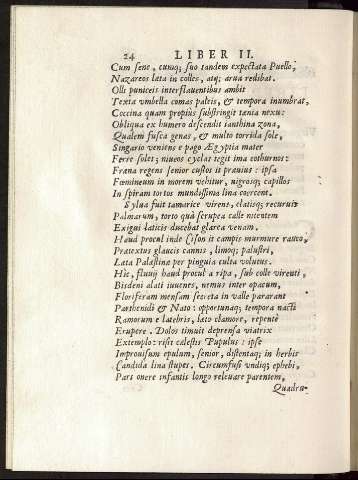 24 LIBER II.
Cum sene, cumq; suo tandem expectata Puello,
Nazareos lata in colles, atq; arua redibat.
Olli puniceis interflauentibus ambit
Texta vmbella comas paleis, & tempora inumbrat,
Coccina quam propiùs substringit tænia nexu:
Obliqua ex humero descendit ianthina zona,
Qualem fusca genas, & multo torrida sole,
Singario veniens e pago Ægyptia mater
Ferre solet; niueos cyclas tegit ima cothurnos:
Frana regens senior custos it præuius: ipsa
Fœmineum in morem vehitur, nigrosq; capillos
In spiram tortos mundissima lina coërcent.
Sylua fuit tamarice virens, elatisq; recuruis
Palmarum, torto quà scrupea calle nitentem
Exigui laticis ducebat glarea venam.
Haud procul inde Cison it campis murmure rauco,
Prætextus glaucis cannis, limoq; palustri,
Lata Palæstina per pinguia culta volutus.
Hîc, fluuij haud procul a ripa, sub colle virenti,
Bisdeni alati iuuenes, nemus inter opacum,
Floriferam mensam secreta in valle pararant
Parthenidi & Nato: opportunaq; tempora nacti
Ramorum e latebris, læto clamore, repentè
Erupere. Dolos timuit deprensa viatrix
Extemplo: risit cælestis Pupulus: ipse
Improuisum epulum, senior, distentaq; in herbis
Candida lina stupet. Circumfusi vndiq; ephebi,
Pars onere infantis longo releuare parentem,
Quadru-